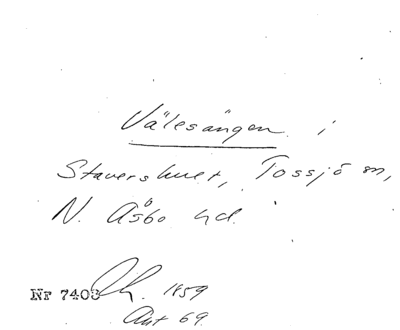 Välesängen i
Stavershult, Tossjö sn,
N. Åsbo hd.
Nr 7408 Lh. 1859
Ant 69.